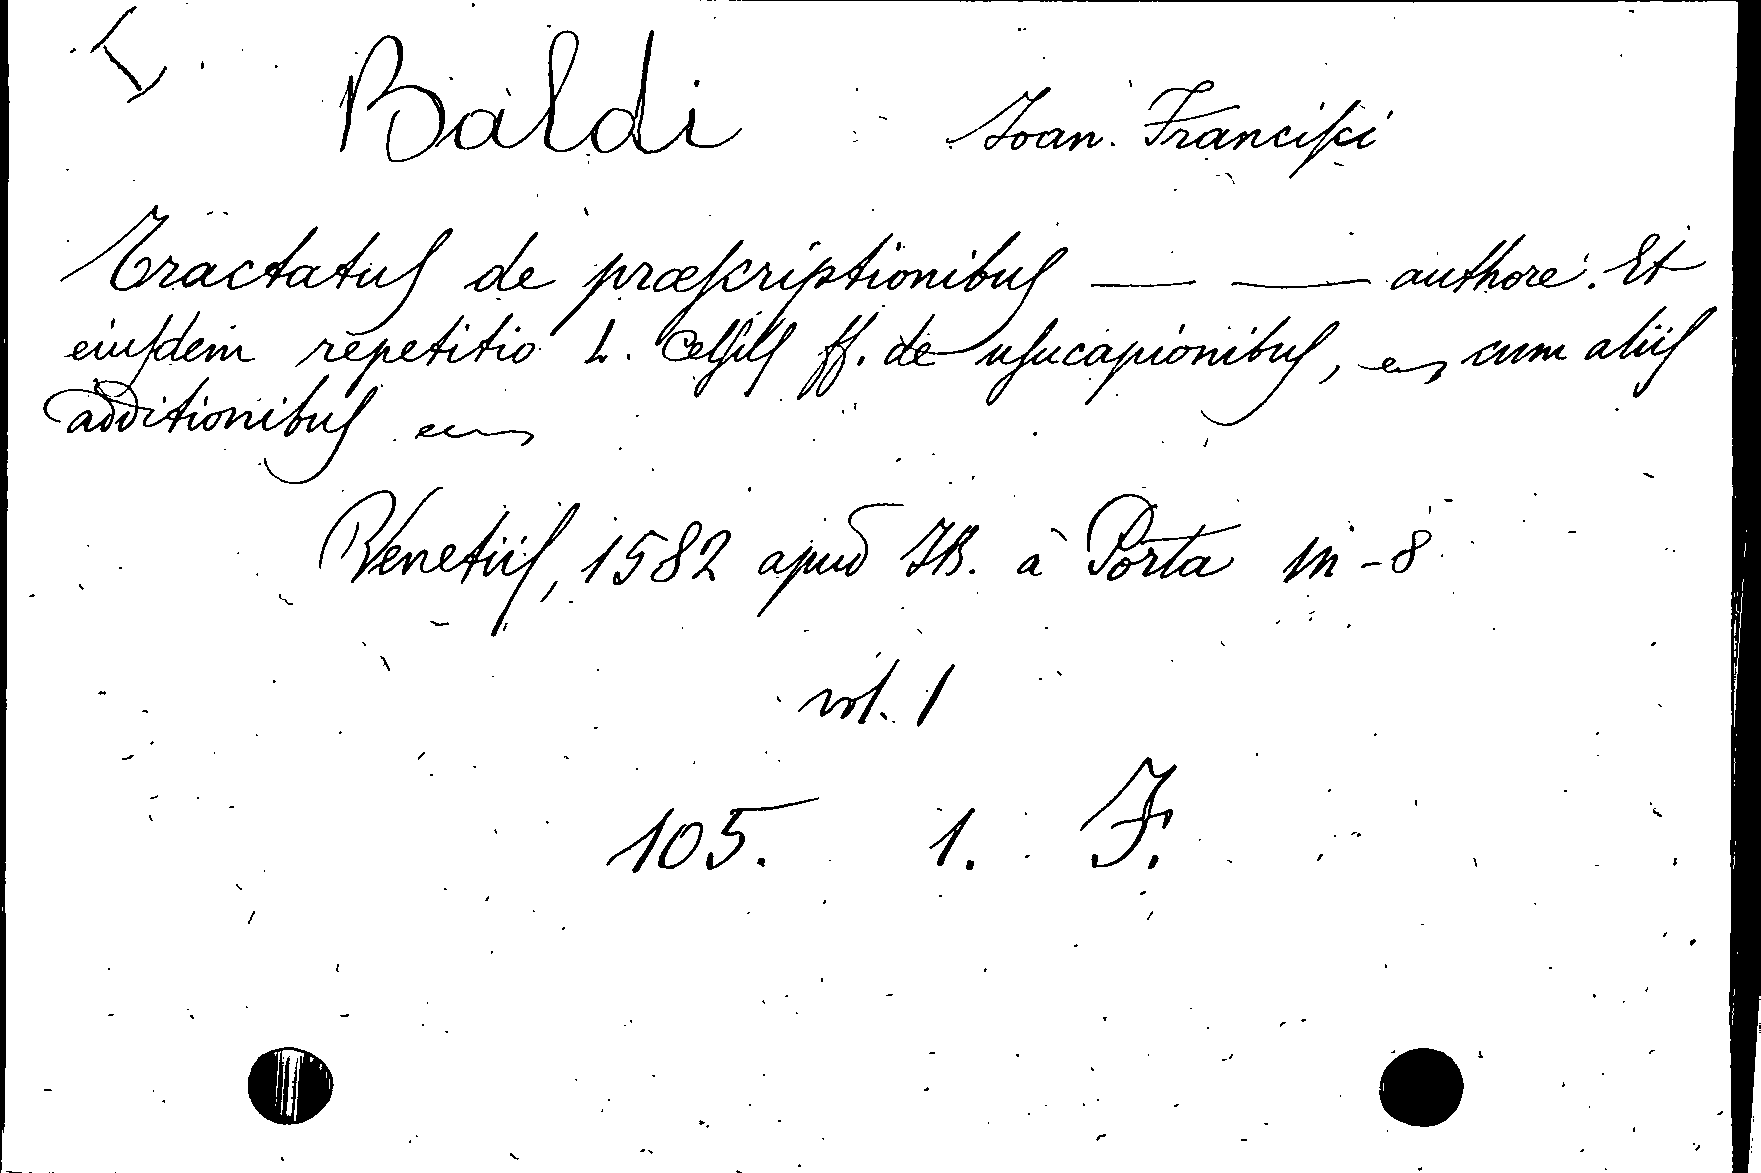 Baldi Joan. Francisci
Tractatus de præscriptionibus — — authore. Et
eiusdem repetitio L. Celsus ff. de usucapionibus, cum aliis
additionibus
Venetiis, 1582 apud JB. à Porta in-8
vol. 1
105. 1. F.